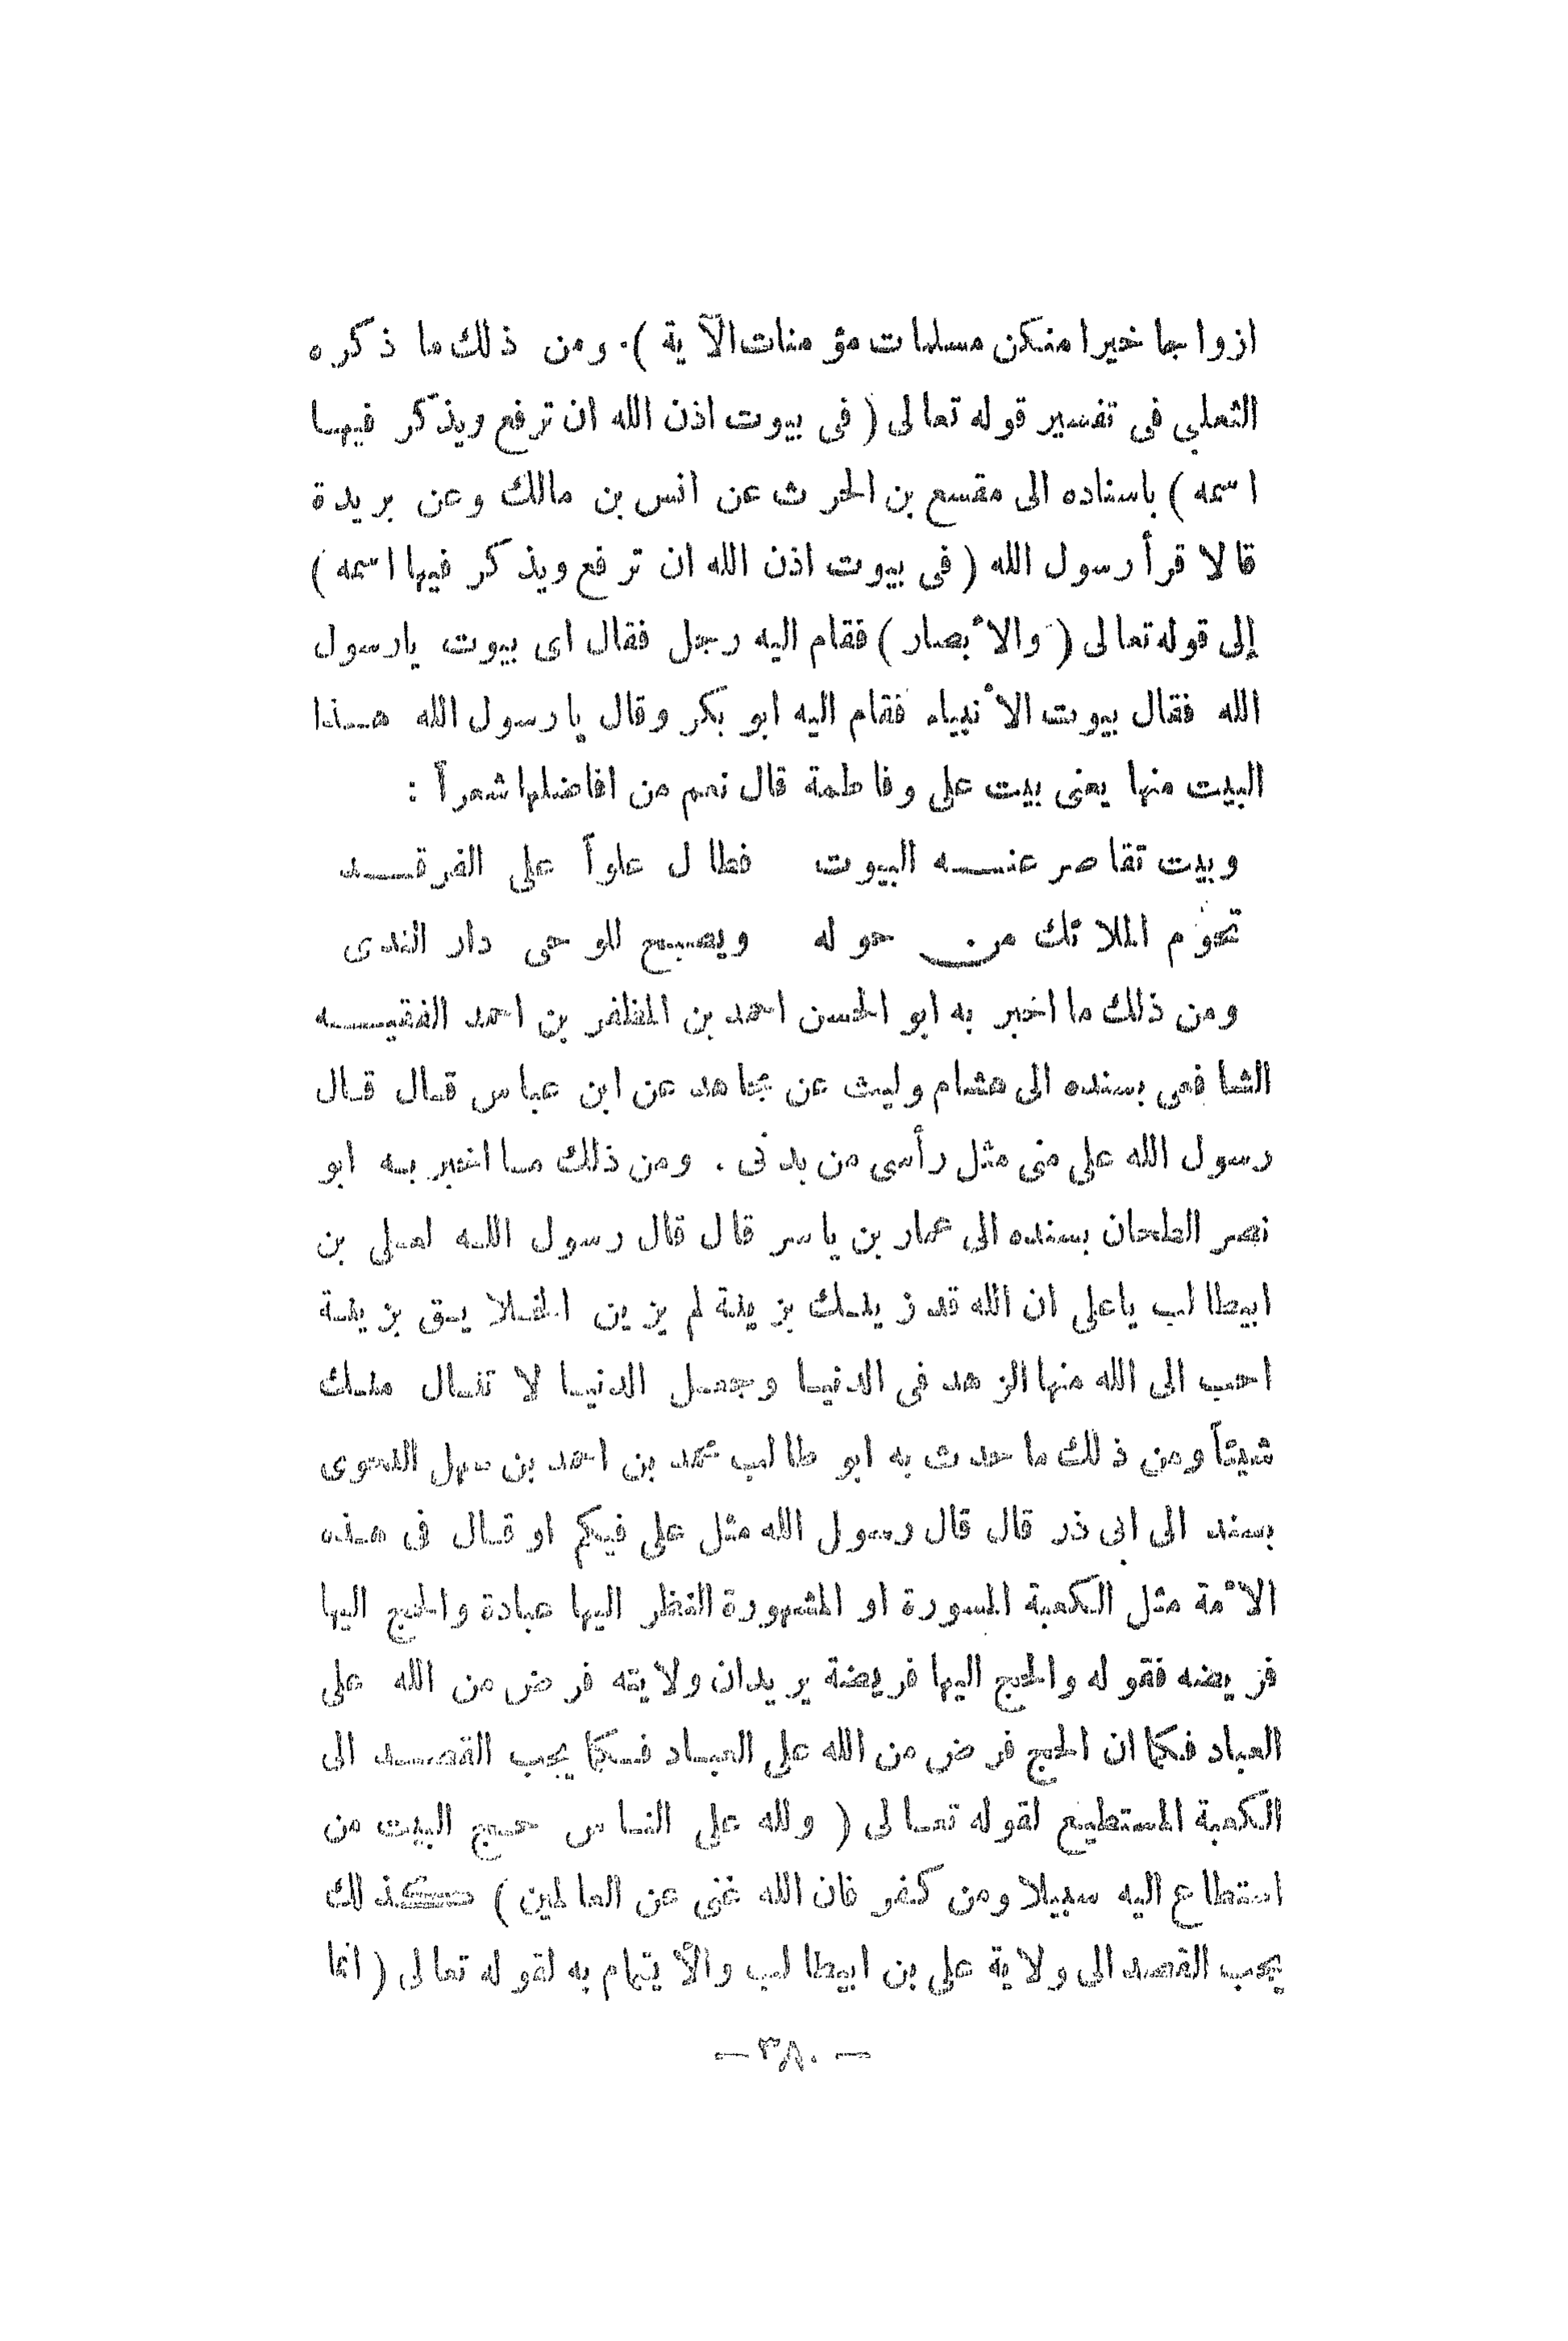 ازواجا خيرا منكن مسلمات مؤمنات الآية ). ومن ذلك ما ذكره
الثعلبي فى تفسير قوله تعالى ( فى بيوت اذن الله ان ترفع ويذكر فيها
اسمه ) باسناده الى مقسع بن الحرث عن انس بن مالك وعن بريدة
قالا قرأ رسول الله ( فى بيوت اذن الله ان ترفع ويذكر فيها اسمه )
إلى قوله تعالى ( والأبصار ) فقام اليه رجل فقال اى بيوت يارسول
الله فقال بيوت الأنبياء فقام اليه ابو بكر وقال يا رسول الله هذا
البيت منها يعنى بيت على وفاطمة قال نعم من افاضلها شعراً :
وبيت تقاصر عنه البيوت فطال علواً على الفرقد
تحوّم الملائك من حوله ويصبح للوحى دار الندى
ومن ذلك ما اخبر به ابو الحسن احمد بن المظفر بن احمد الفقيه
الشافعى بسنده الى هشام وليث عن مجاهد عن ابن عباس قال قال
رسول الله على منى مثل رأسى من بدنى . ومن ذلك ما اخبر به ابو
نصر الطحان بسنده الى عمار بن ياسر قال قال رسول الله لعلى بن
ابيطالب ياعلى ان الله قد زينك بزينة لم يزين الخلايق بزينة
احب الى الله منها الزهد فى الدنيا وجعل الدنيا لا تنال منك
شيئاً ومن ذلك ما حدث به ابو طالب محمد بن احمد بن سهل النحوى
بسند الى ابى ذر قال قال رسول الله مثل على فيكم او قال فى هذه
الأمة مثل الكعبة المسورة او المشهورة النظر اليها عبادة والحج اليها
فريضه فقوله والحج اليها فريضة يريدان ولايته فرض من الله على
العباد فكما ان الحج فرض من الله على العباد فكما يجب القصد الى
الكعبة المستطيع لقوله تعالى ( ولله على الناس حج البيت من
استطاع اليه سبيلا ومن كفر فان الله غنى عن العالمين ) كذلك
يجب القصد الى ولاية على بن ابيطالب والأيتمام به لقوله تعالى ( انما
— ٣٨٠ —